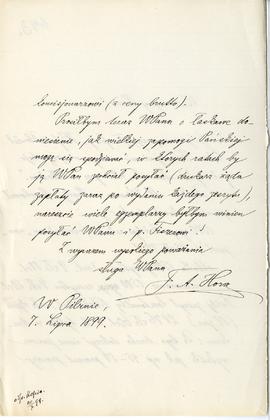 komisjonarzowi (z ceny brutto).
Prosiłbym teraz WPana o łaskawe do-
niesienie, jak wielkiej zapomogi Pańskiej
mogę się spodziewać, w których ratach by
ją WPan zechciał posyłać (drukarz żąda
zapłaty zaraz po wydaniu każdego zeszytu),
nareszcie wiele egzemplarzy byłbym winien
posyłać WPanu i p.
Z wyrazem wysokiego poważania
sługa WPana
F. A. Hora
W Pilznie,
7. Lipca 1899.